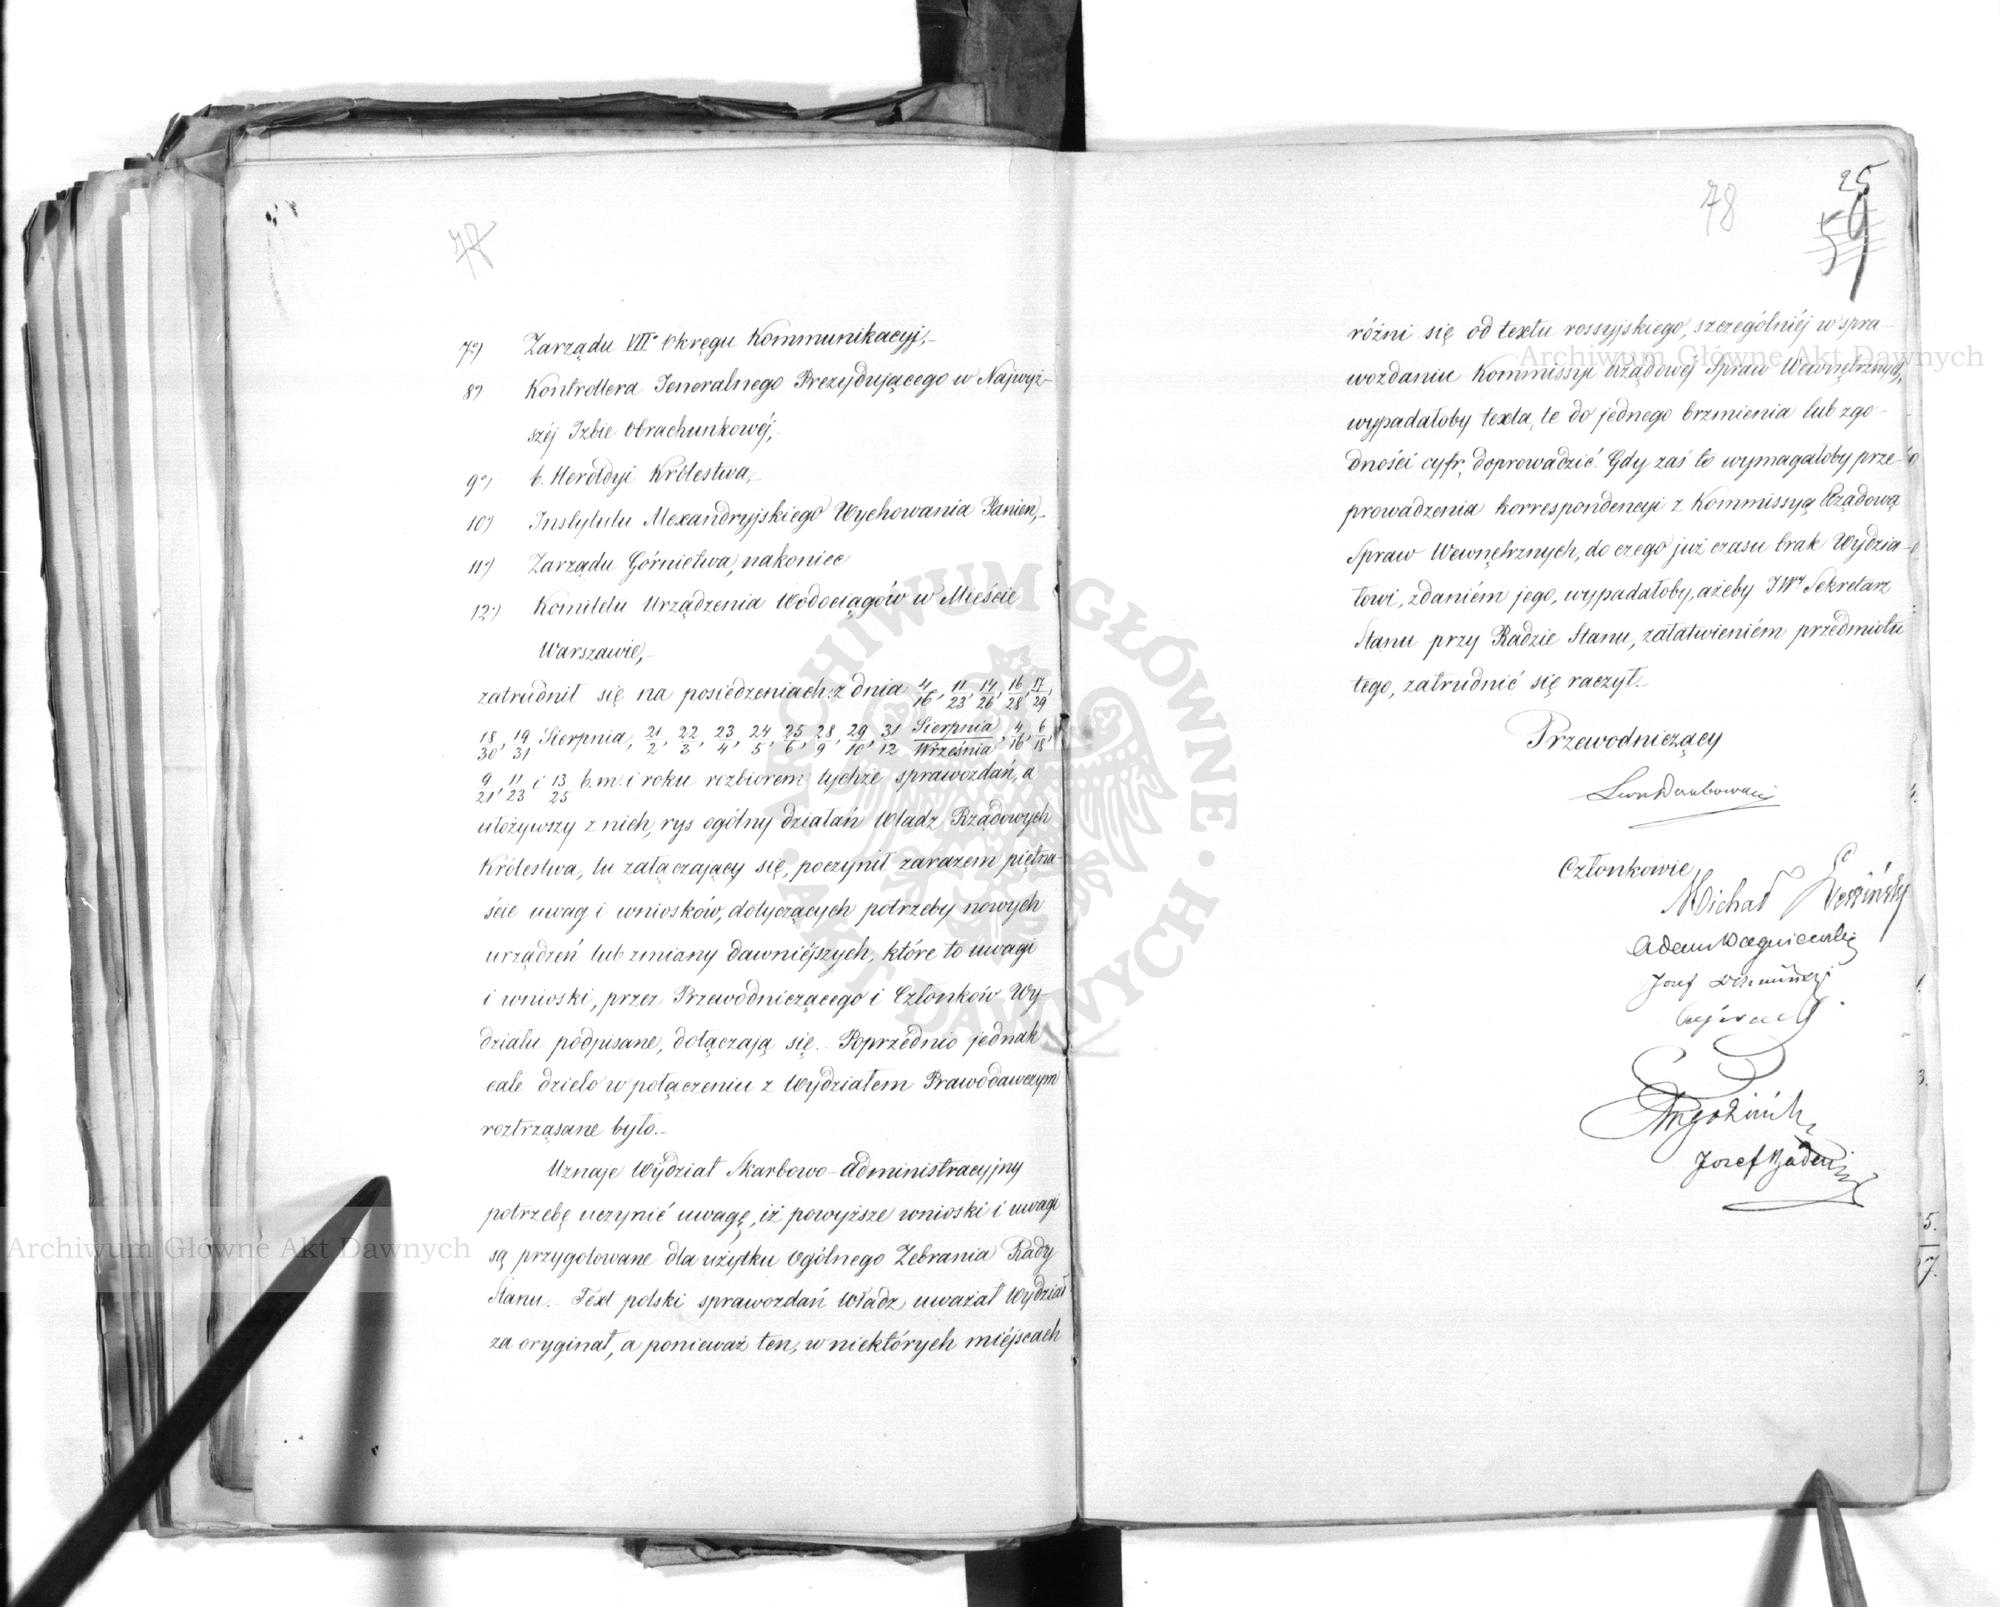 78
7o) Zarządu VIIo Okręgu Kommunikacyj,_
8o) Kontrollera Jeneralnego Prezydującego w Najwyż-
széj Izbie Obrachunkowéj,_
9o) b. Heroldyi Królestwa,_
10o) Instytutu Alexandryjskiego Wychowania Panien,_
11o) Zarządu Górnictwa, nakoniec
12o) Komitetu Urządzenia Wodociągów w Mieście
Warszawie,_
zatrudnił się na posiedzeniach: z dnia 4/16, 11/23, 14/26, 16/28, 17/29,
18/30, 19/31 Sierpnia, 21/2, 22/3, 23/4, 24/5, 25/6, 28/9, 29/10, 31/12 Sierpnia/Września, 4/16, 6/18,
9/21, 11/23 i 13/25 b. m. i roku rozbiorem tychże sprawozdań, a
ułożywszy z nich, rys ogólny działań Władz Rządowych
Królestwa, tu załączający się, poczynił zarazem piętna-
ście uwag i wniosków, dotyczących potrzeby nowych
urządzeń lub zmiany dawniéjszych, które to uwagi
i wnioski, przez Przewodniczącego i Członków Wy-
działu podpisane, dołączają się._ Poprzednio jednak
całe dzieło w połączeniu z Wydziałem Prawodawczym
roztrząsane było._
Uznaje Wydział Skarbowo-Administracyjny
potrzebę uczynić uwagę, iż powyższe wnioski i uwagi
są przygotowane dla użytku Ogólnego Zebrania Rady
Stanu._ Text polski sprawozdań Władz uważał Wydział
za oryginał, a ponieważ ten, w niektórych miéjscach
78
25
59
różni się od textu rossyjskiego, szczególniéj w spra-
wozdaniu Kommissyi Rządowéj Spraw Wewnętrznych,
wypadałoby texta te do jednego brzmienia lub zgo-
dności cyfr, doprowadzić. Gdy zaś to wymagałoby prze-
prowadzenia korrespondencyi z Kommissyą Rządową
Spraw Wewnętrznych, do czego już czasu brak Wydzia-
łowi, zdaniém jego, wypadałoby, ażeby JWy Sekretarz
Stanu przy Radzie Stanu, załatwieniém przedmiotu
tego, zatrudnić się raczył._
Przewodniczący
Członkowie
Michał
Adam
Józef
Józef
5.
7.
Archiwum Główne Akt Dawnych
Archiwum Główne Akt Dawnych
ARCHIWUM GŁÓWNE AKT DAWNYCH